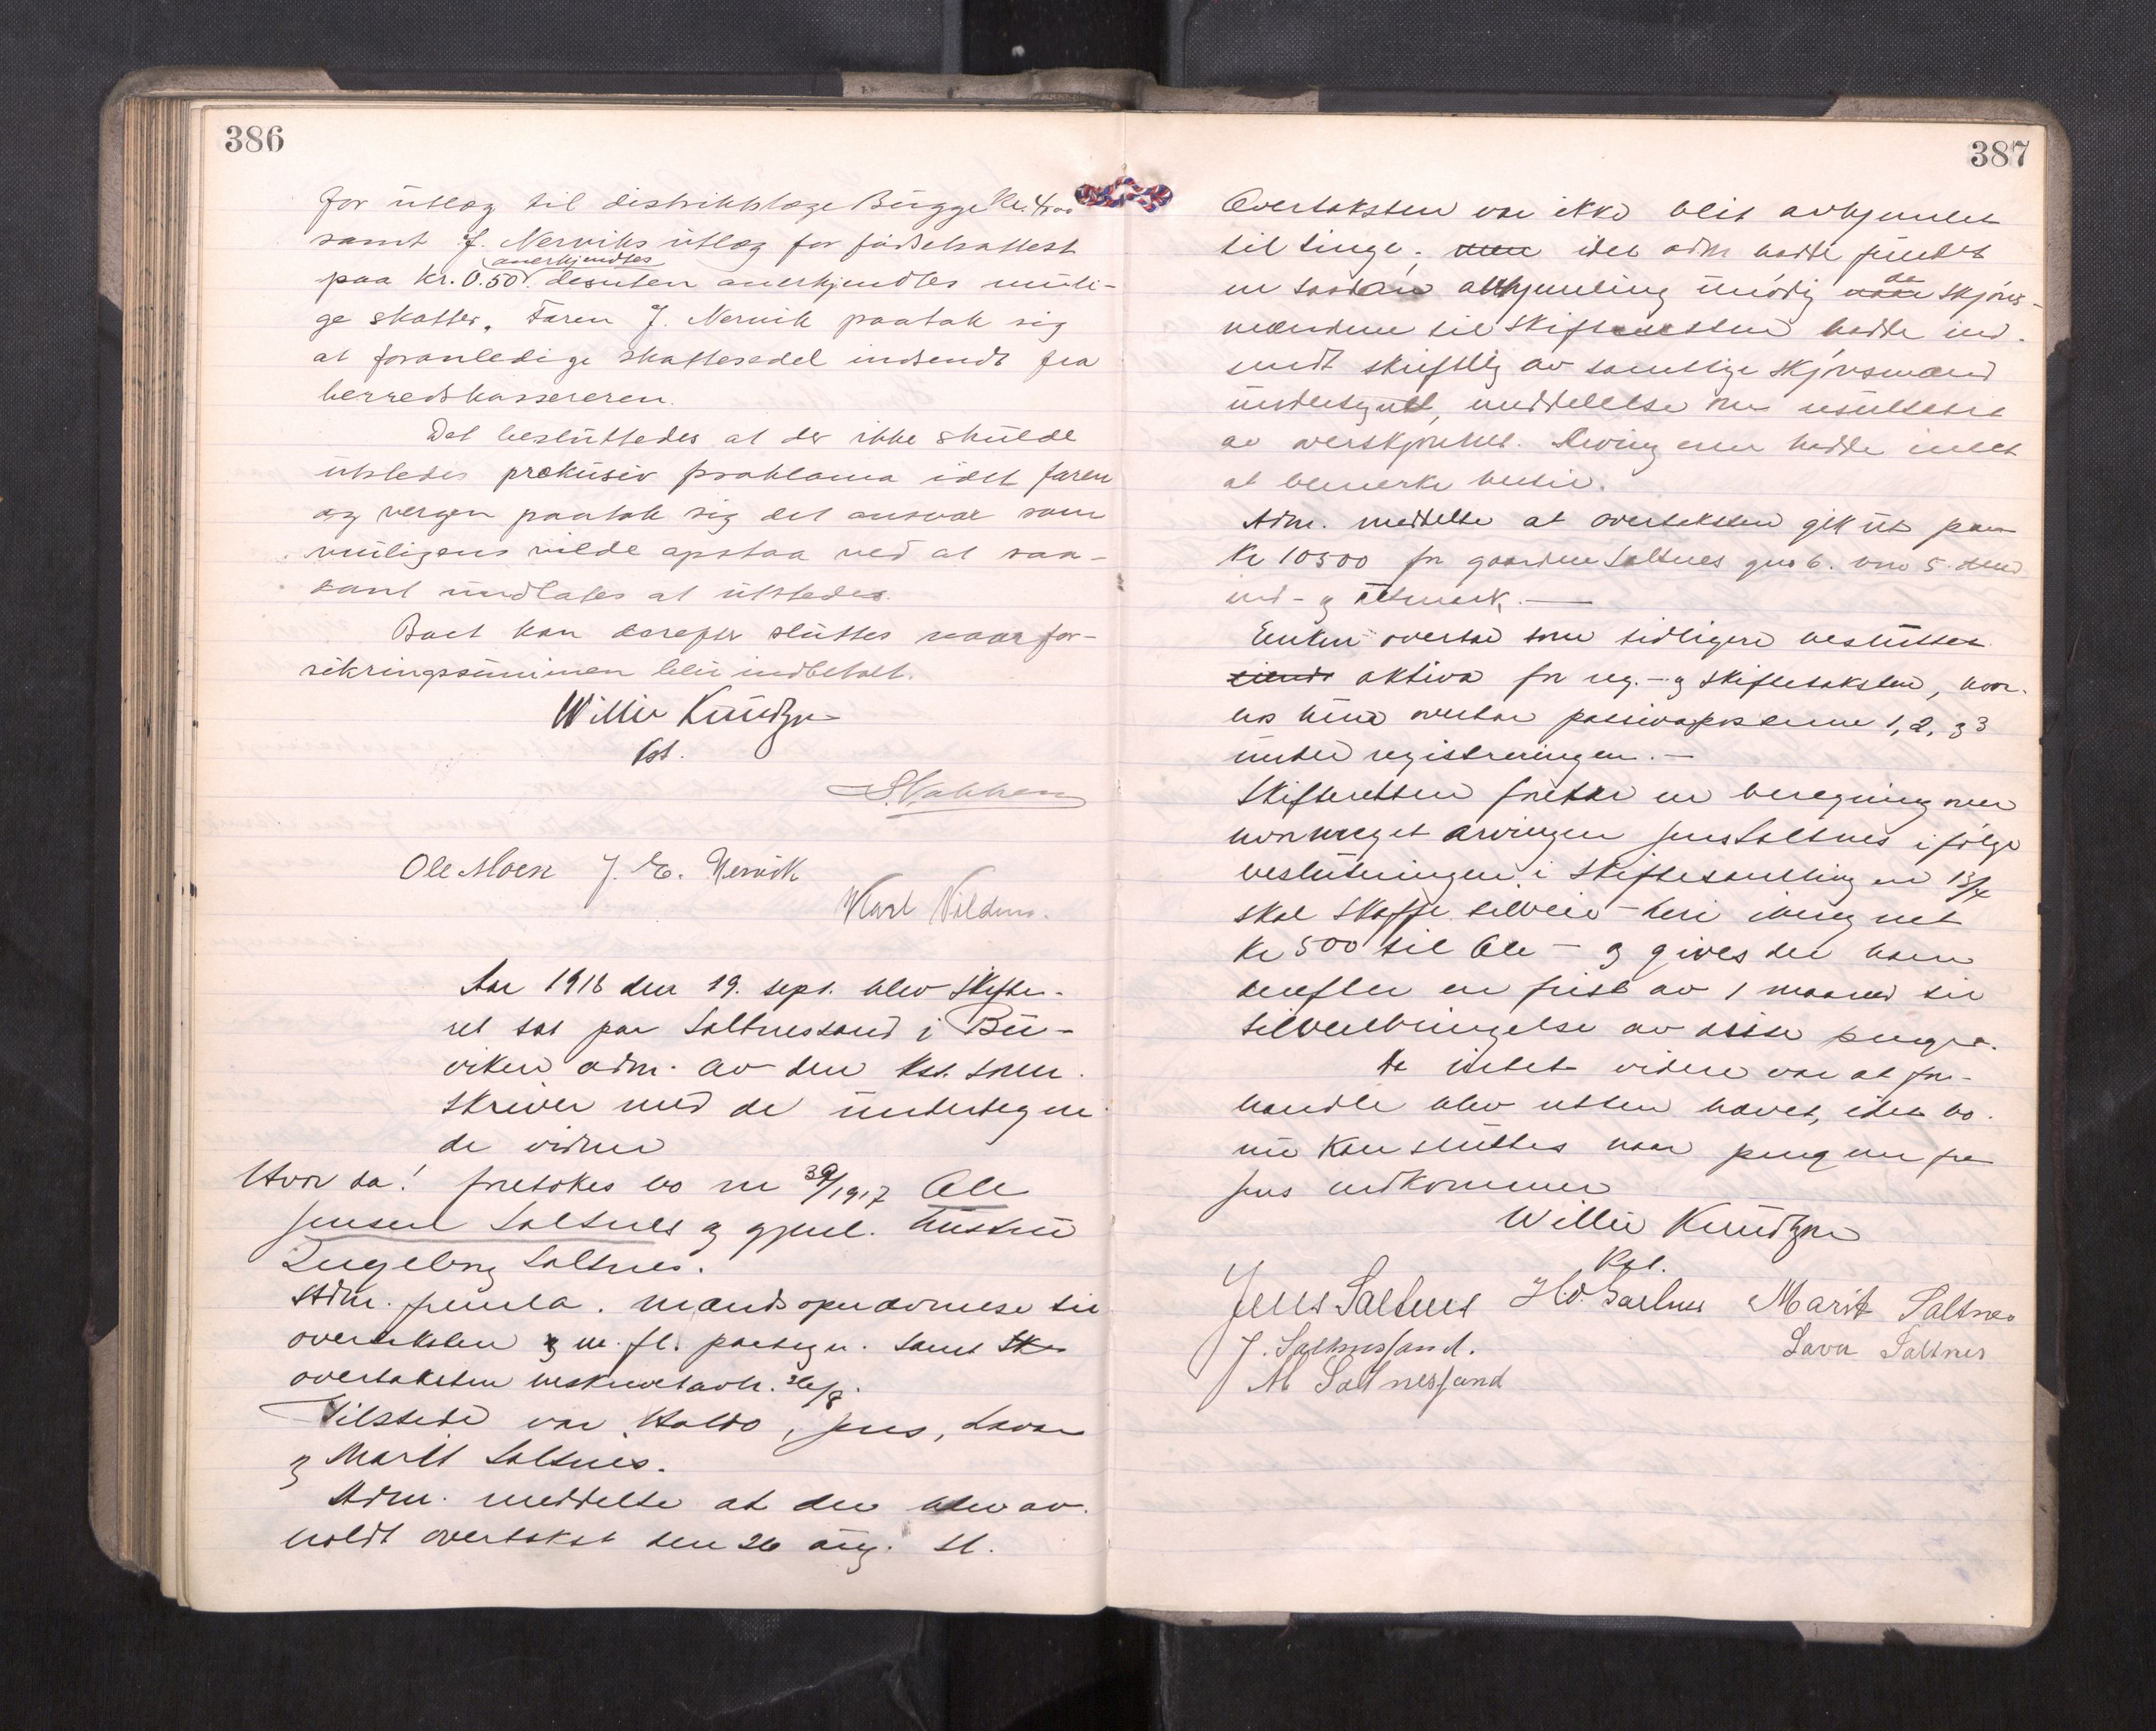 386
for utlæg til distriktslæge Bugge Kr. 4,00
samt J. Nerviks utlæg for fødselsattest
anerkjendtes
paa kr. 0.50. desuten anerkjendtes muli-
ge skatter. Faren J. Nervik paatok sig
at foranledige skattesedel indsendt fra
herredskassereren.
Det besluttedes at der ikke skulde
utstedes preklusiv proklama idet faren
og vergen paatok sig det ansvar som
muligens vilde opstaa ved at saa-
dant undlates at utstedes.
Boet kan derefter sluttes naar for-
sikringssummen blir indbetalt.
Willie Knudtzon
Kst.
Ole Moen J. E. Nervik
Karl Vildmo.
Aar 1918 den 19. sept. blev skifte-
ret sat paa Saltnessand i Bu-
viken adm. av den kst. soren-
skriver med de undertegne-
de vidner
Hvor da! foretokes bo nr 39/1917 Ole
Jensen Saltnes og gjenl. hustru
Ingeborg Saltnes.
Adm. fremla. mandsopnævnelse til
overtaksten og m. fl. paategn. samt
overtaksten beskrevet avh. 26/8.
Tilstede var Haldo, Jens, Lava
og Marit Saltnes.
Adm. meddelte at der blev av-
holdt overtakst den 26 aug. sl.
387
Overtaksten var ikke blit avhjemlet
til tinge, men idet adm hadde fundet
en saadan avhjemling unødig da skjøns-
mændene til skifteretten hadde ind-
sendt skriftlig av samtlige skjønsmænd
undertegnet, meddelelse om resultatet
av overskjønnet. Arvingerne hadde intet
at bemerke hertil.
Adm. meddelte at overtaksten gik ut paa
Kr 10500 for gaarden Saltnes gno 6. bno 5. med
ind- og utmark.
Enken overtar som tidligere besluttet
aktiva for reg.- og skiftetaksten, hvor-
hos hun overtar passivaposterne 1, 2, og 3
under registreringen.
Skifteretten foretar en beregning over
hvor meget arvingen Jens Saltnes i følge
beslutningen i skiftesamling en 13/7
skal skaffe tilveie - heri iberegnet
Kr 500 til Ole - og gives der ham
derefter en frist av 1 maaned til
tilveiebringelse av disse penger.
Da intet videre var at for-
handle blev retten hævet, idet bo
nu kan sluttes naar pengene fra
Jens indkommer
Willie Knudtzon
Kst.
Jens Saltnes H.O. Saltnes Marit Saltnes
J. Saltnessand. Lava Saltnes
M Saltnessand